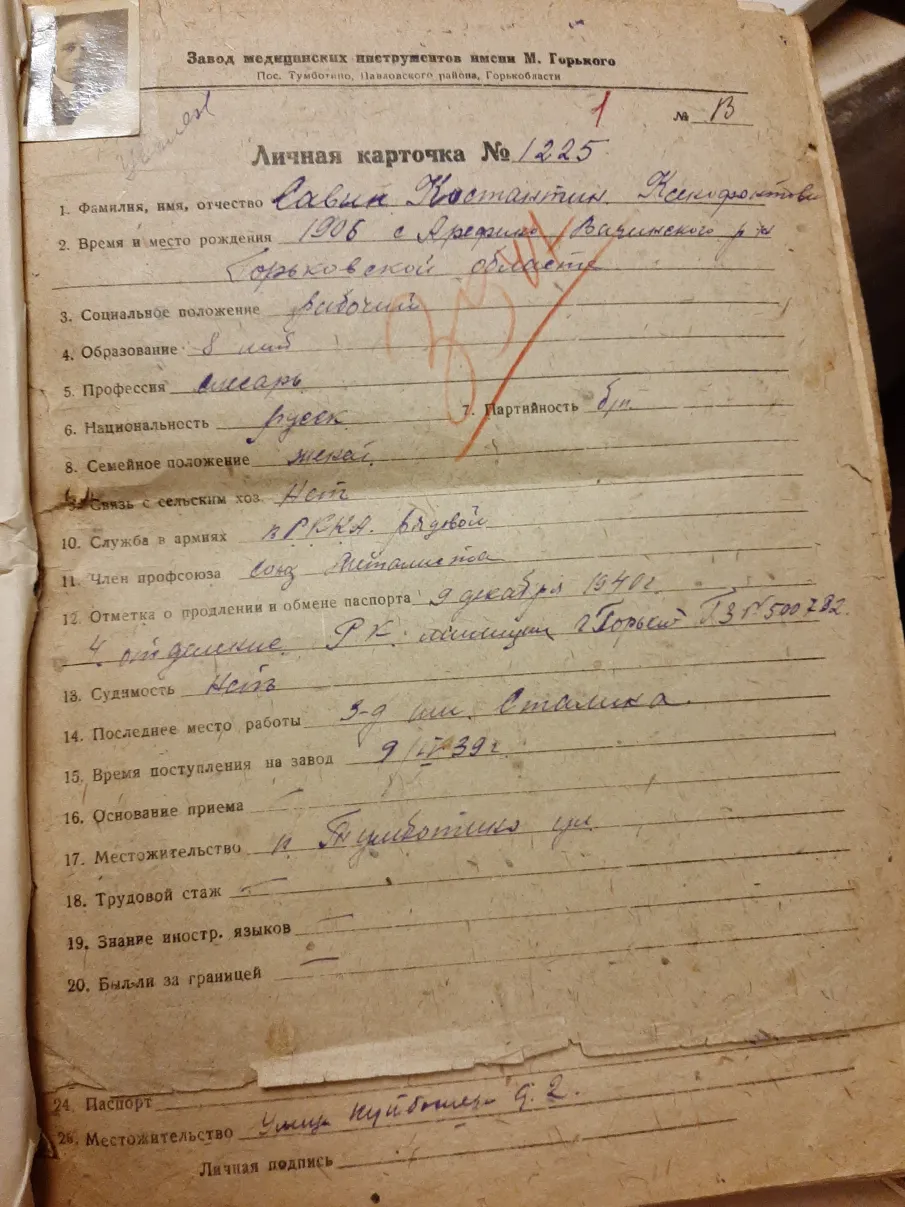 Завод медицинских инструментов имени М. Горького
Пос. Тумботино, Павловского района, Горькобласти
1
№ В
уволен
Личная карточка № 1225
1. Фамилия, имя, отчество Савин Костантин Ксенофонтови
2. Время и место рождения 1906 с Арефино Вачинского р-н
Горьковской области
3. Социальное положение рабочий
4. Образование 8
5. Профессия слесарь
6. Национальность русск. 7. Партийность б/п.
8. Семейное положение женат.
9. Связь с сельским хоз. Нет
10. Служба в армиях в РККА. рядовой
11. Член профсоюза союз Металиста
12. Отметка о продлении и обмене паспорта 9 декабря 1940 г.
4. отделение Р К милиции г Горький ТЗ № 500782.
13. Судимость Нетъ
14. Последнее место работы З-д им. Сталина.
15. Время поступления на завод 9/IV 39 г
16. Основание приема —
17. Местожительство п. Тумботино ул
18. Трудовой стаж —
19. Знание иностр. языков —
20. Был-ли за границей —
24. Паспорт
26. Местожительство Улица Куйбышева д. 2.
Личная подпись